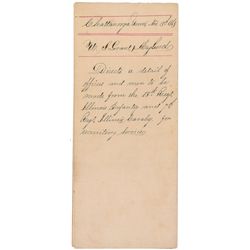 Chattanooga Tenn.
U. S. Grant, Maj Genl
Directs a detail of
officers and men to be
made from the 18th Regt
Illinois Infantry and 7th
Regt Illinois Cavalry for
recruiting service